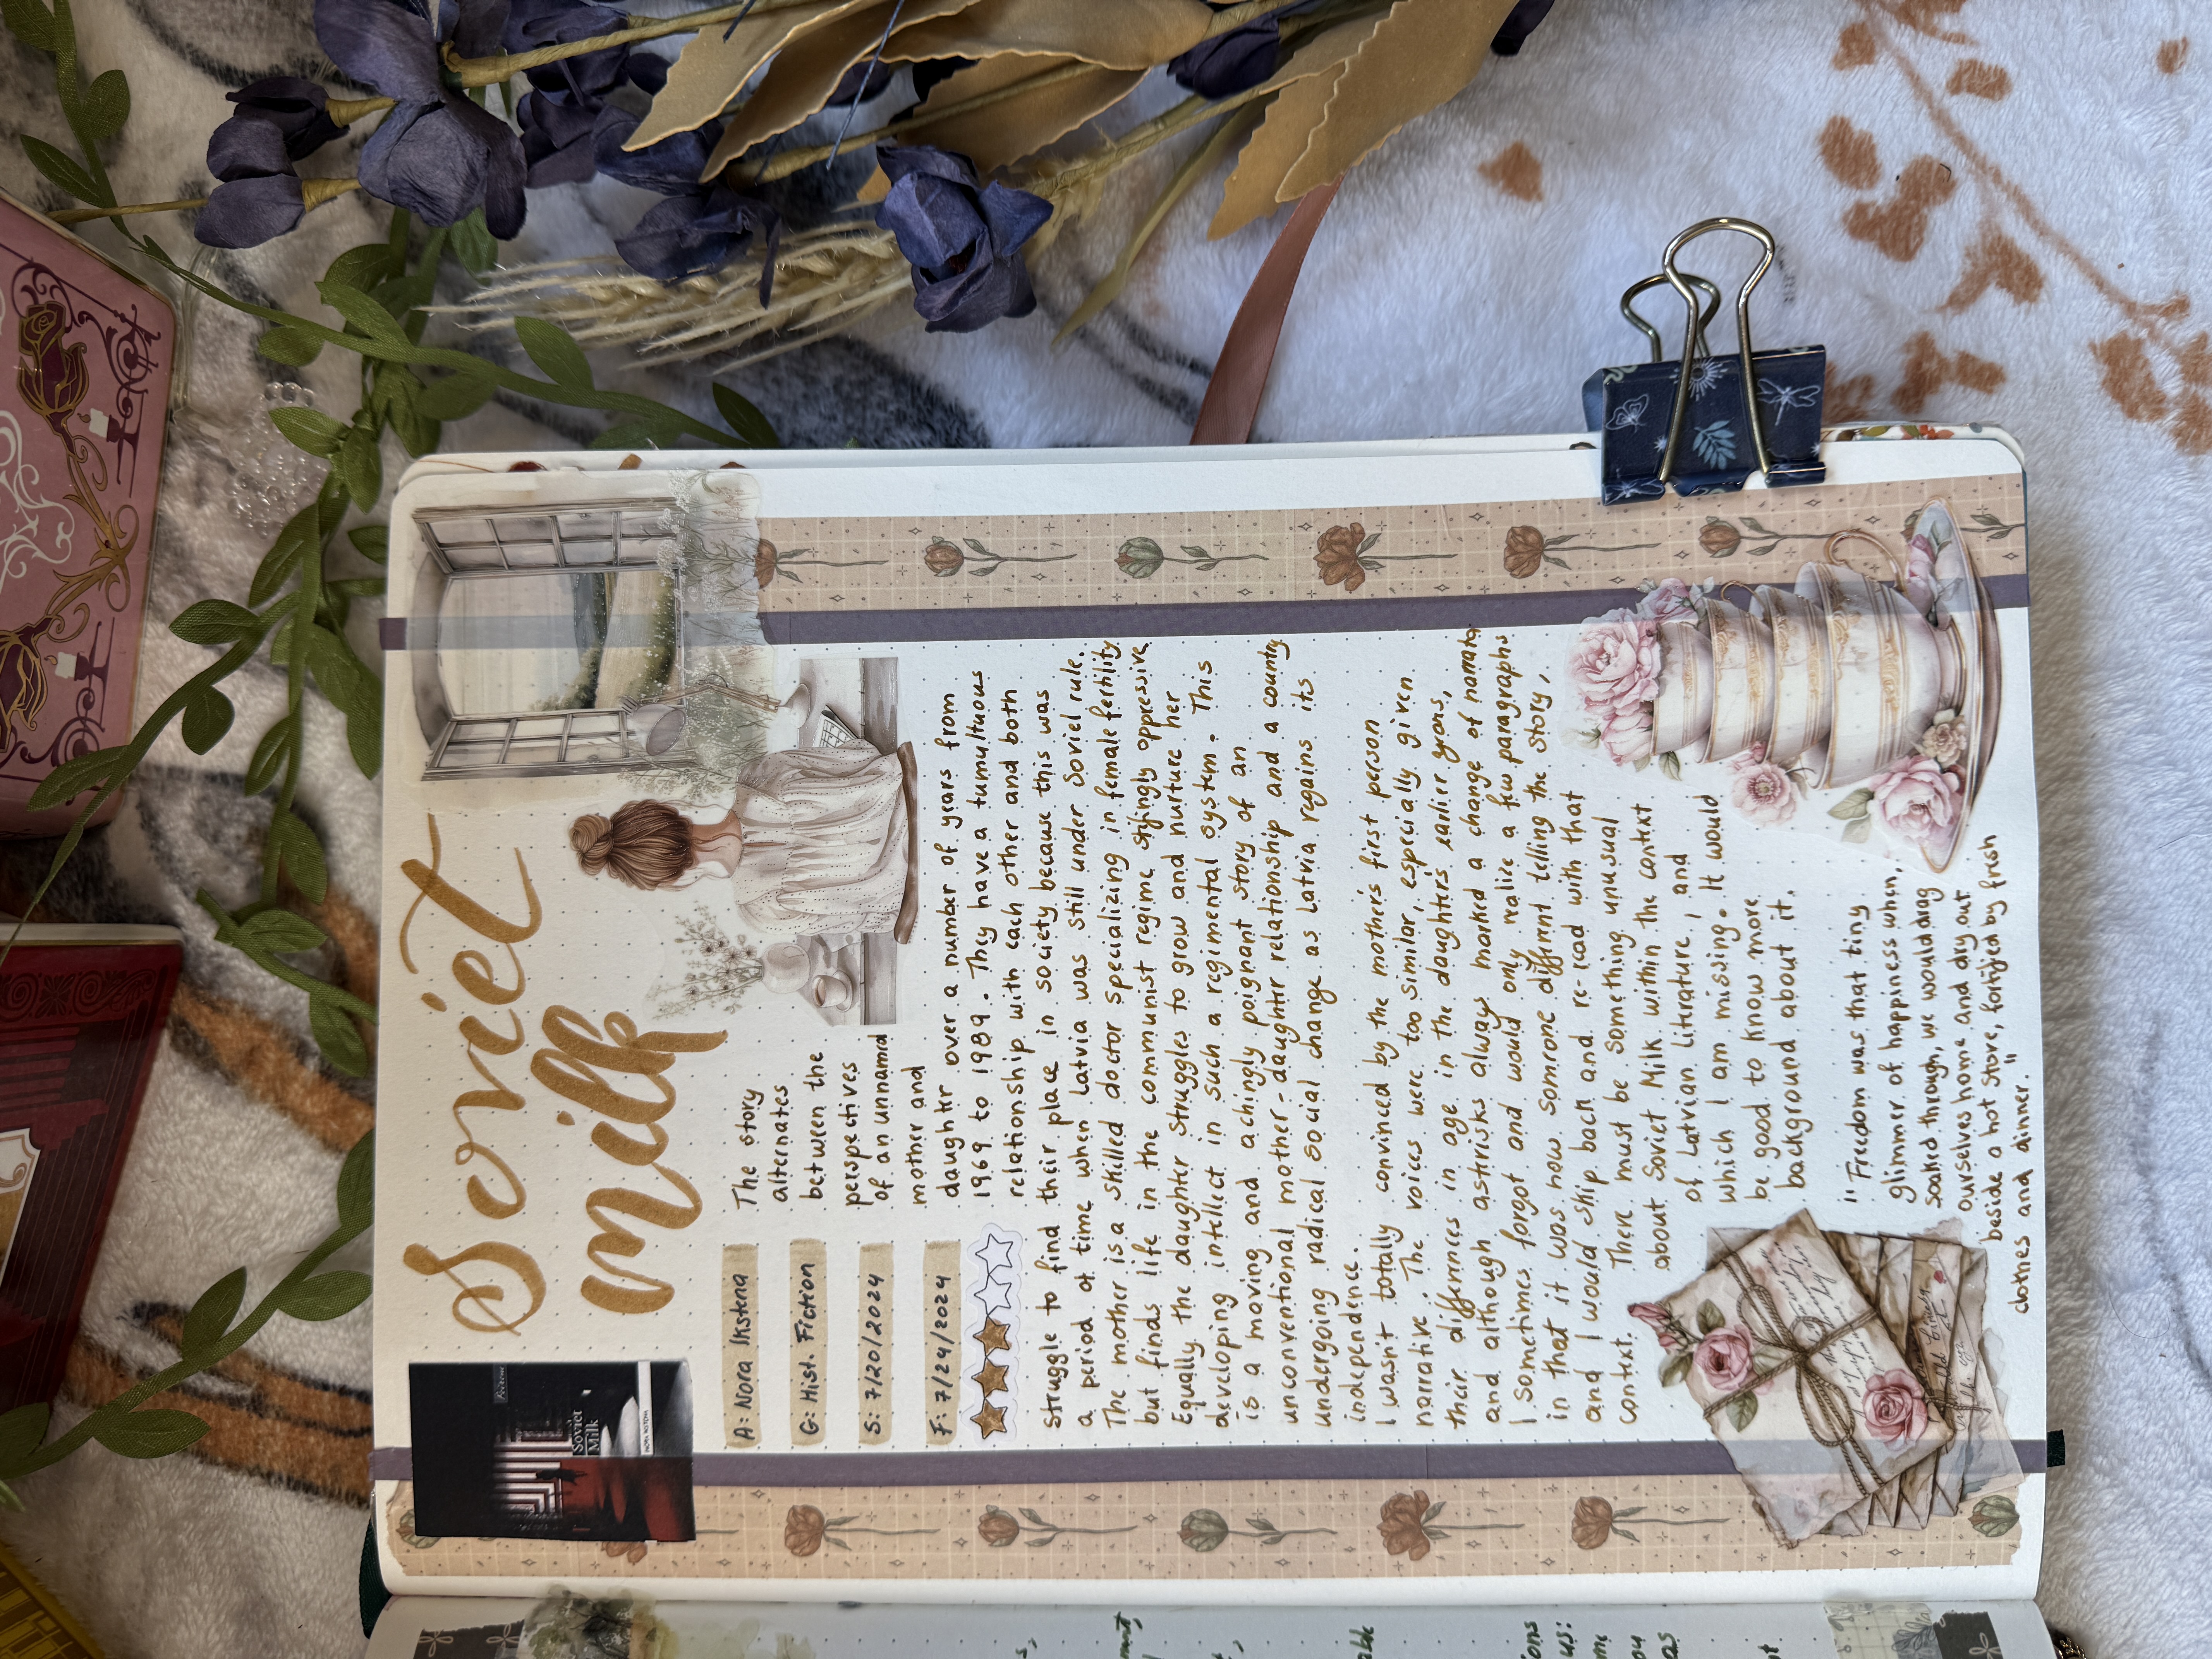 Soviet
milk
Soviet
Milk
A: Nora Ikstena
G: Hist. Fiction
S: 7/20/2024
F: 7/24/2024
The story
alternates
between the
perspectives
of an unnamed
mother and
daughter over a number of years from
1969 to 1989. They have a tumultuous
relationship with each other and both
struggle to find their place in society because this was
a period of time when Latvia was still under Soviel rule.
The mother is a skilled doctor specializing in female fertility
but finds life in the communist regime stiflingly oppressive
Equally the daughter struggles to grow and nurture her
developing intellect in such a regimental system. This
is a moving and achingly poignant story of an
unconventional mother-daughter relationship and a country
undergoing radical social change as Latvia regains its
independence.
I wasn't totally convinced by the mother's first person
narrative. The voices were too similar, especially given
their differences in age in the daughters earlier years,
and although astirisks always marked a change of narrator
I sometimes forgot and would only realize a few paragraphs
in that it was now someone different telling the story,
and I would skip back and re-read with that
context. There must be something unusual
about Soviet Milk within the context
of Latvian literature, and
which I am missing. It would
be good to know more
background about it.
"Freedom was that tiny
glimmer of happiness when,
soaked through, we would drag
ourselves home and dry out
beside a hot stove, fortified by fresh
clothes and dinner."